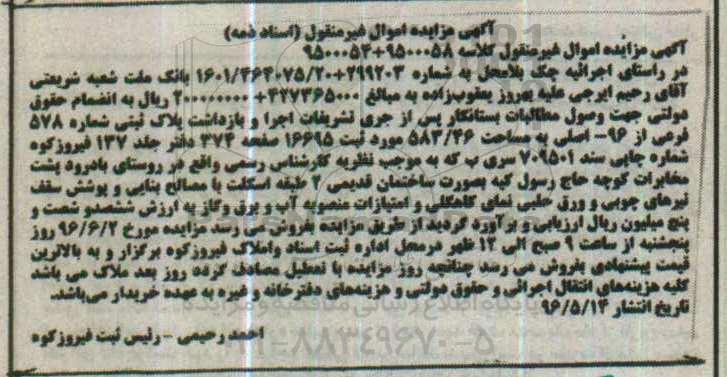 آگهی مزایده اموال غیرمنقول (اسناد ذمه)
آگهی مزایده اموال غیرمنقول کلاسه ۹۵۰۰۰۵۸+۹۵۰۰۰۵۴
در راستای اجرائیه چک بلامحل به شماره ۲۹۹۲۰۳+۱۶۰۱/۳۶۴۰۷۵/۲۰ بانک ملت شعبه شریعتی
آقای رحیم ایرجی علیه بهروز یعقوب‌زاده به مبالغ ۴۲۷۳۶۵۰۰۰+۲۰۰۰۰۰۰۰۰ ریال به انضمام حقوق
دولتی جهت وصول مطالبات بستانکار پس از جری تشریفات اجرا و بازداشت پلاک ثبتی شماره ۵۷۸
فرعی از ۹۶- اصلی به مساحت ۵۸۳/۴۶ مورد ثبت ۱۶۶۹۵ صفحه ۳۷۴ دفتر جلد ۱۳۷ فیروزکوه
شماره چاپی سند ۷۰۹۵۰۱ سری ب که به موجب نظریه کارشناس رسمی واقع در روستای بادرود پشت
مخابرات کوچه حاج رسول که بصورت ساختمان قدیمی ۲ طبقه اسکلت با مصالح بنایی و پوشش سقف
تیرهای چوبی و ورق حلبی نمای کاهگلی و امتیازات منصوبه آب و برق وگاز به ارزش ششصدو شصت و
پنج میلیون ریال ارزیابی و برآورد گردید از طریق مزایده بفروش می رسد مزایده مورخ ۹۶/۶/۲ روز
پنجشنبه از ساعت ۹ صبح الی ۱۲ ظهر درمحل اداره ثبت اسناد واملاک فیروزکوه برگزار و به بالاترین
قیمت پیشنهادی بفروش می رسد چنانچه روز مزایده با تعطیل مصادف گرده روز بعد ملاک می باشد
کلیه هزینه‌های انتقال اجرائی و حقوق دولتی و هزینه‌های دفترخانه و غیره به عهده خریدار می‌باشد.
تاریخ انتشار ۹۶/۵/۱۴
احمد رحیمی - رئیس ثبت فیروزکوه
پایگاه اطلاع رسانی مناقصه و مزایده
۰۲۱-۸۸۳۴۹۶۷۰-۵